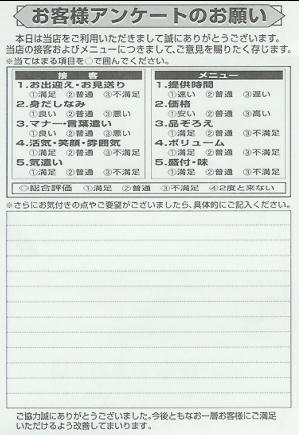 お客様アンケートのお願い
本日は当店をご利用いただきまして誠にありがとうございます。
当店の接客およびメニューにつきまして、ご意見を賜りたく存じます。
※当てはまる項目を○で囲んでください。
接客
1.お出迎え・お見送り
①満足 ②普通 ③不満足
2.身だしなみ
①良い ②普通 ③悪い
3.マナー・言葉遣い
①良い ②普通 ③悪い
4.活気・笑顔・雰囲気
①満足 ②普通 ③不満足
5.気遣い
①満足 ②普通 ③不満足
メニュー
1.提供時間
①速い ②普通 ③遅い
2.価格
①安い ②普通 ③高い
3.品ぞろえ
①満足 ②普通 ③不満足
4.ボリューム
①満足 ②普通 ③不満足
5.盛付・味
①満足 ②普通 ③不満足
◎総合評価 ①満足 ②普通 ③不満足 ④2度と来ない
※さらにお気付きの点やご要望がございましたら、具体的にご記入ください。
ご協力誠にありがとうございました。今後ともなお一層お客様にご満足
いただけるよう改善してまいります。